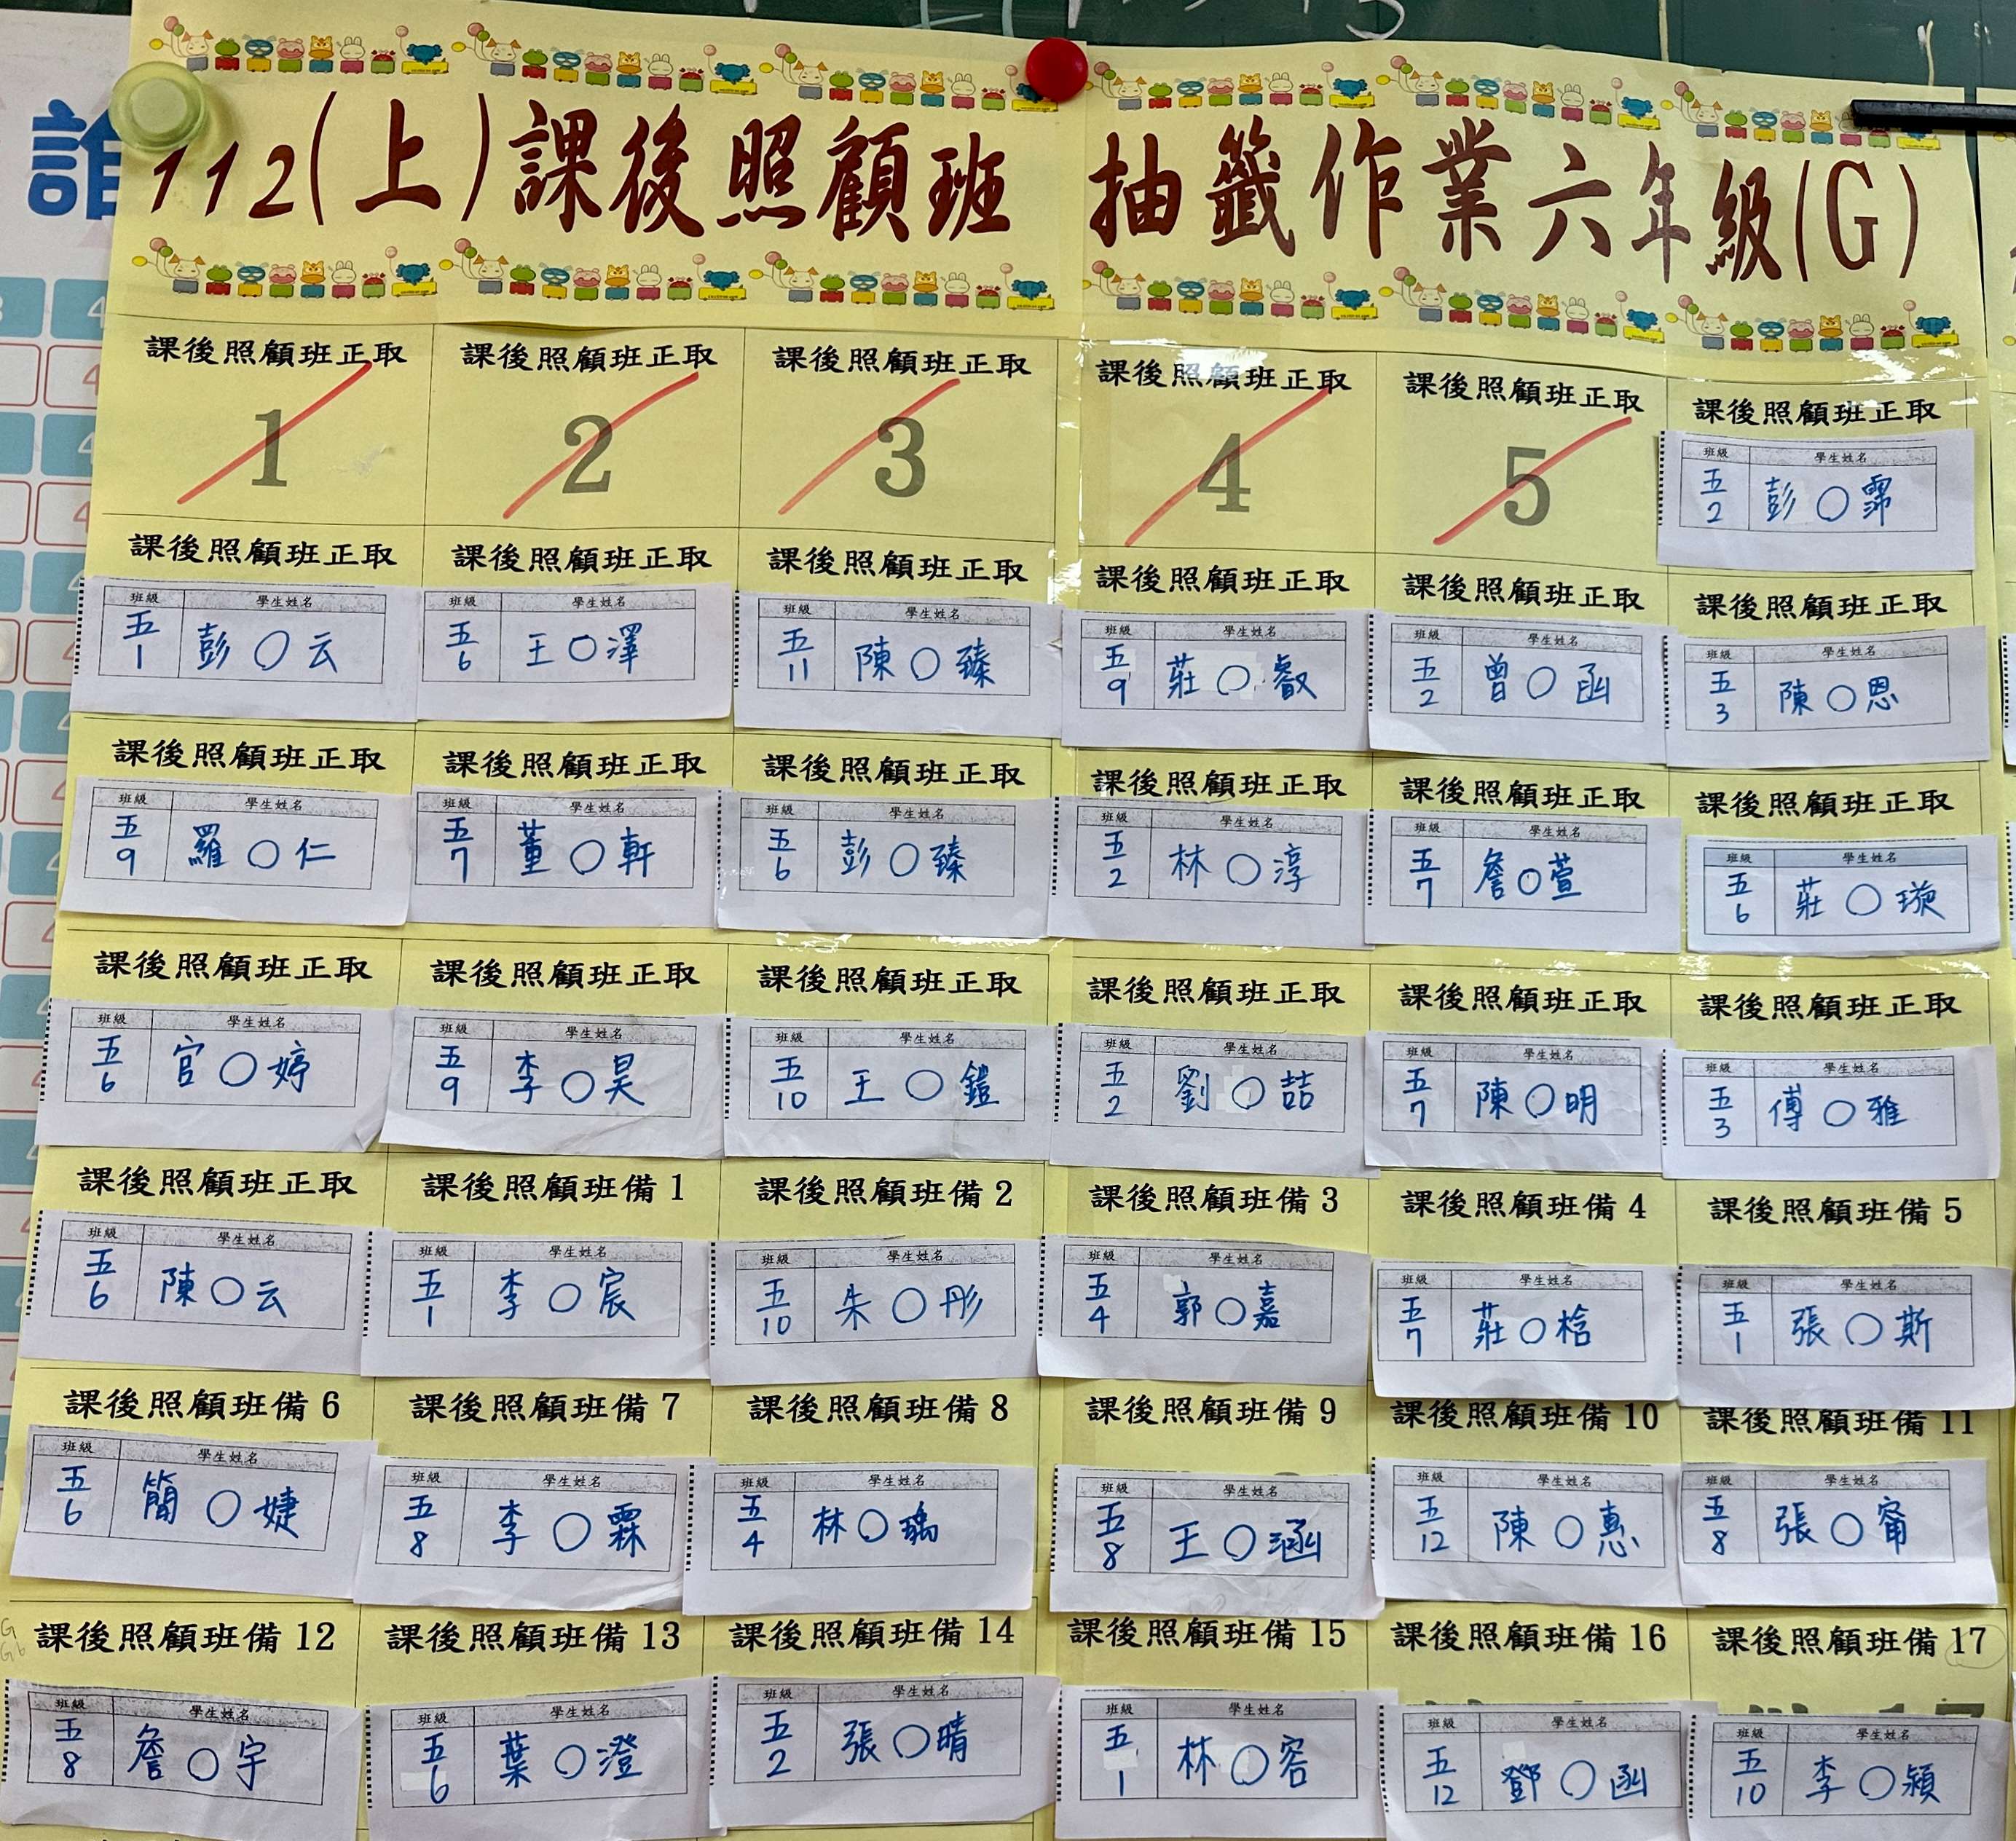 112(上)課後照顧班 抽籤作業六年級(G)
課後照顧班正取 課後照顧班正取 課後照顧班正取 課後照顧班正取 課後照顧班正取 課後照顧班正取
1 2 3 4 5
班級 學生姓名
五2 彭○霈
課後照顧班正取 課後照顧班正取 課後照顧班正取 課後照顧班正取 課後照顧班正取 課後照顧班正取
班級 學生姓名 班級 學生姓名 班級 學生姓名 班級 學生姓名 班級 學生姓名 班級 學生姓名
五1 彭○云 五6 王○澤 五11 陳○臻 五9 莊○叡 五2 曾○函 五3 陳○恩
課後照顧班正取 課後照顧班正取 課後照顧班正取 課後照顧班正取 課後照顧班正取 課後照顧班正取
班級 學生姓名 班級 學生姓名 班級 學生姓名 班級 學生姓名 班級 學生姓名 班級 學生姓名
五9 羅○仁 五7 董○軒 五6 彭○臻 五2 林○淳 五7 詹○萱 五6 莊○璇
課後照顧班正取 課後照顧班正取 課後照顧班正取 課後照顧班正取 課後照顧班正取 課後照顧班正取
班級 學生姓名 班級 學生姓名 班級 學生姓名 班級 學生姓名 班級 學生姓名 班級 學生姓名
五6 官○婷 五9 李○昊 五10 王○鎧 五2 劉○喆 五7 陳○明 五3 傅○雅
課後照顧班正取 課後照顧班備1 課後照顧班備2 課後照顧班備3 課後照顧班備4 課後照顧班備5
班級 學生姓名 班級 學生姓名 班級 學生姓名 班級 學生姓名 班級 學生姓名 班級 學生姓名
五6 陳○云 五1 李○宸 五10 朱○彤 五4 郭○嘉 五7 莊○ 五1 張○斯
課後照顧班備6 課後照顧班備7 課後照顧班備8 課後照顧班備9 課後照顧班備10 課後照顧班備11
班級 學生姓名 班級 學生姓名 班級 學生姓名 班級 學生姓名 班級 學生姓名 班級 學生姓名
五6 簡○婕 五8 李○霖 五4 林○瑀 五8 王○涵 五12 陳○惠 五8 張○甯
課後照顧班備12 課後照顧班備13 課後照顧班備14 課後照顧班備15 課後照顧班備16 課後照顧班備17
班級 學生姓名 班級 學生姓名 班級 學生姓名 班級 學生姓名 班級 學生姓名 班級 學生姓名
五8 詹○宇 五6 葉○澄 五2 張○晴 五1 林○容 五12 鄧○函 五10 李○穎